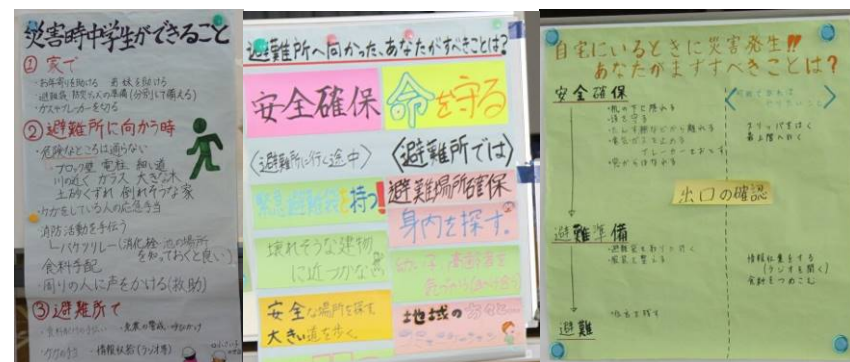 災害時中学生ができること
① 家で
・お年寄りを助ける 弟、妹を助ける
・ガスやブレーカーを切る
② 避難所に向かう時
・危険なところは通らない
・ブロック塀 電柱 細い道
川の近く ガラス 大きな木
土砂くずれ 倒れそうな家
・ケガをしている人の応急手当
消防活動を手伝う
バケツリレー(消化栓・池の場所
を知っておくと良い)
食料手配
・周りの人に声をかける(救助)
③ 避難所で
・情報収集(ラジオ等)
避難所へ向かった、あなたがすべきことは?
安全確保
命を守る
〈避難所に行く途中〉
〈避難所では〉
緊急避難袋を持つ!
避難場所確保
身内を探す。
壊れそうな建物
に近づかない
安全な場所を探す
大きい道を歩く。
地域の
自宅にいるときに災害発生!!
あなたがまずすべきことは?
安全確保
・机の下に隠れる
・頭を守る
ブレーカーをおとす
・窓からはなれる
スリッパをはく
最上階へ行く
出口の確認
避難準備
情報収集をする
(ラジオを聞く)
食料をつめこむ
避難